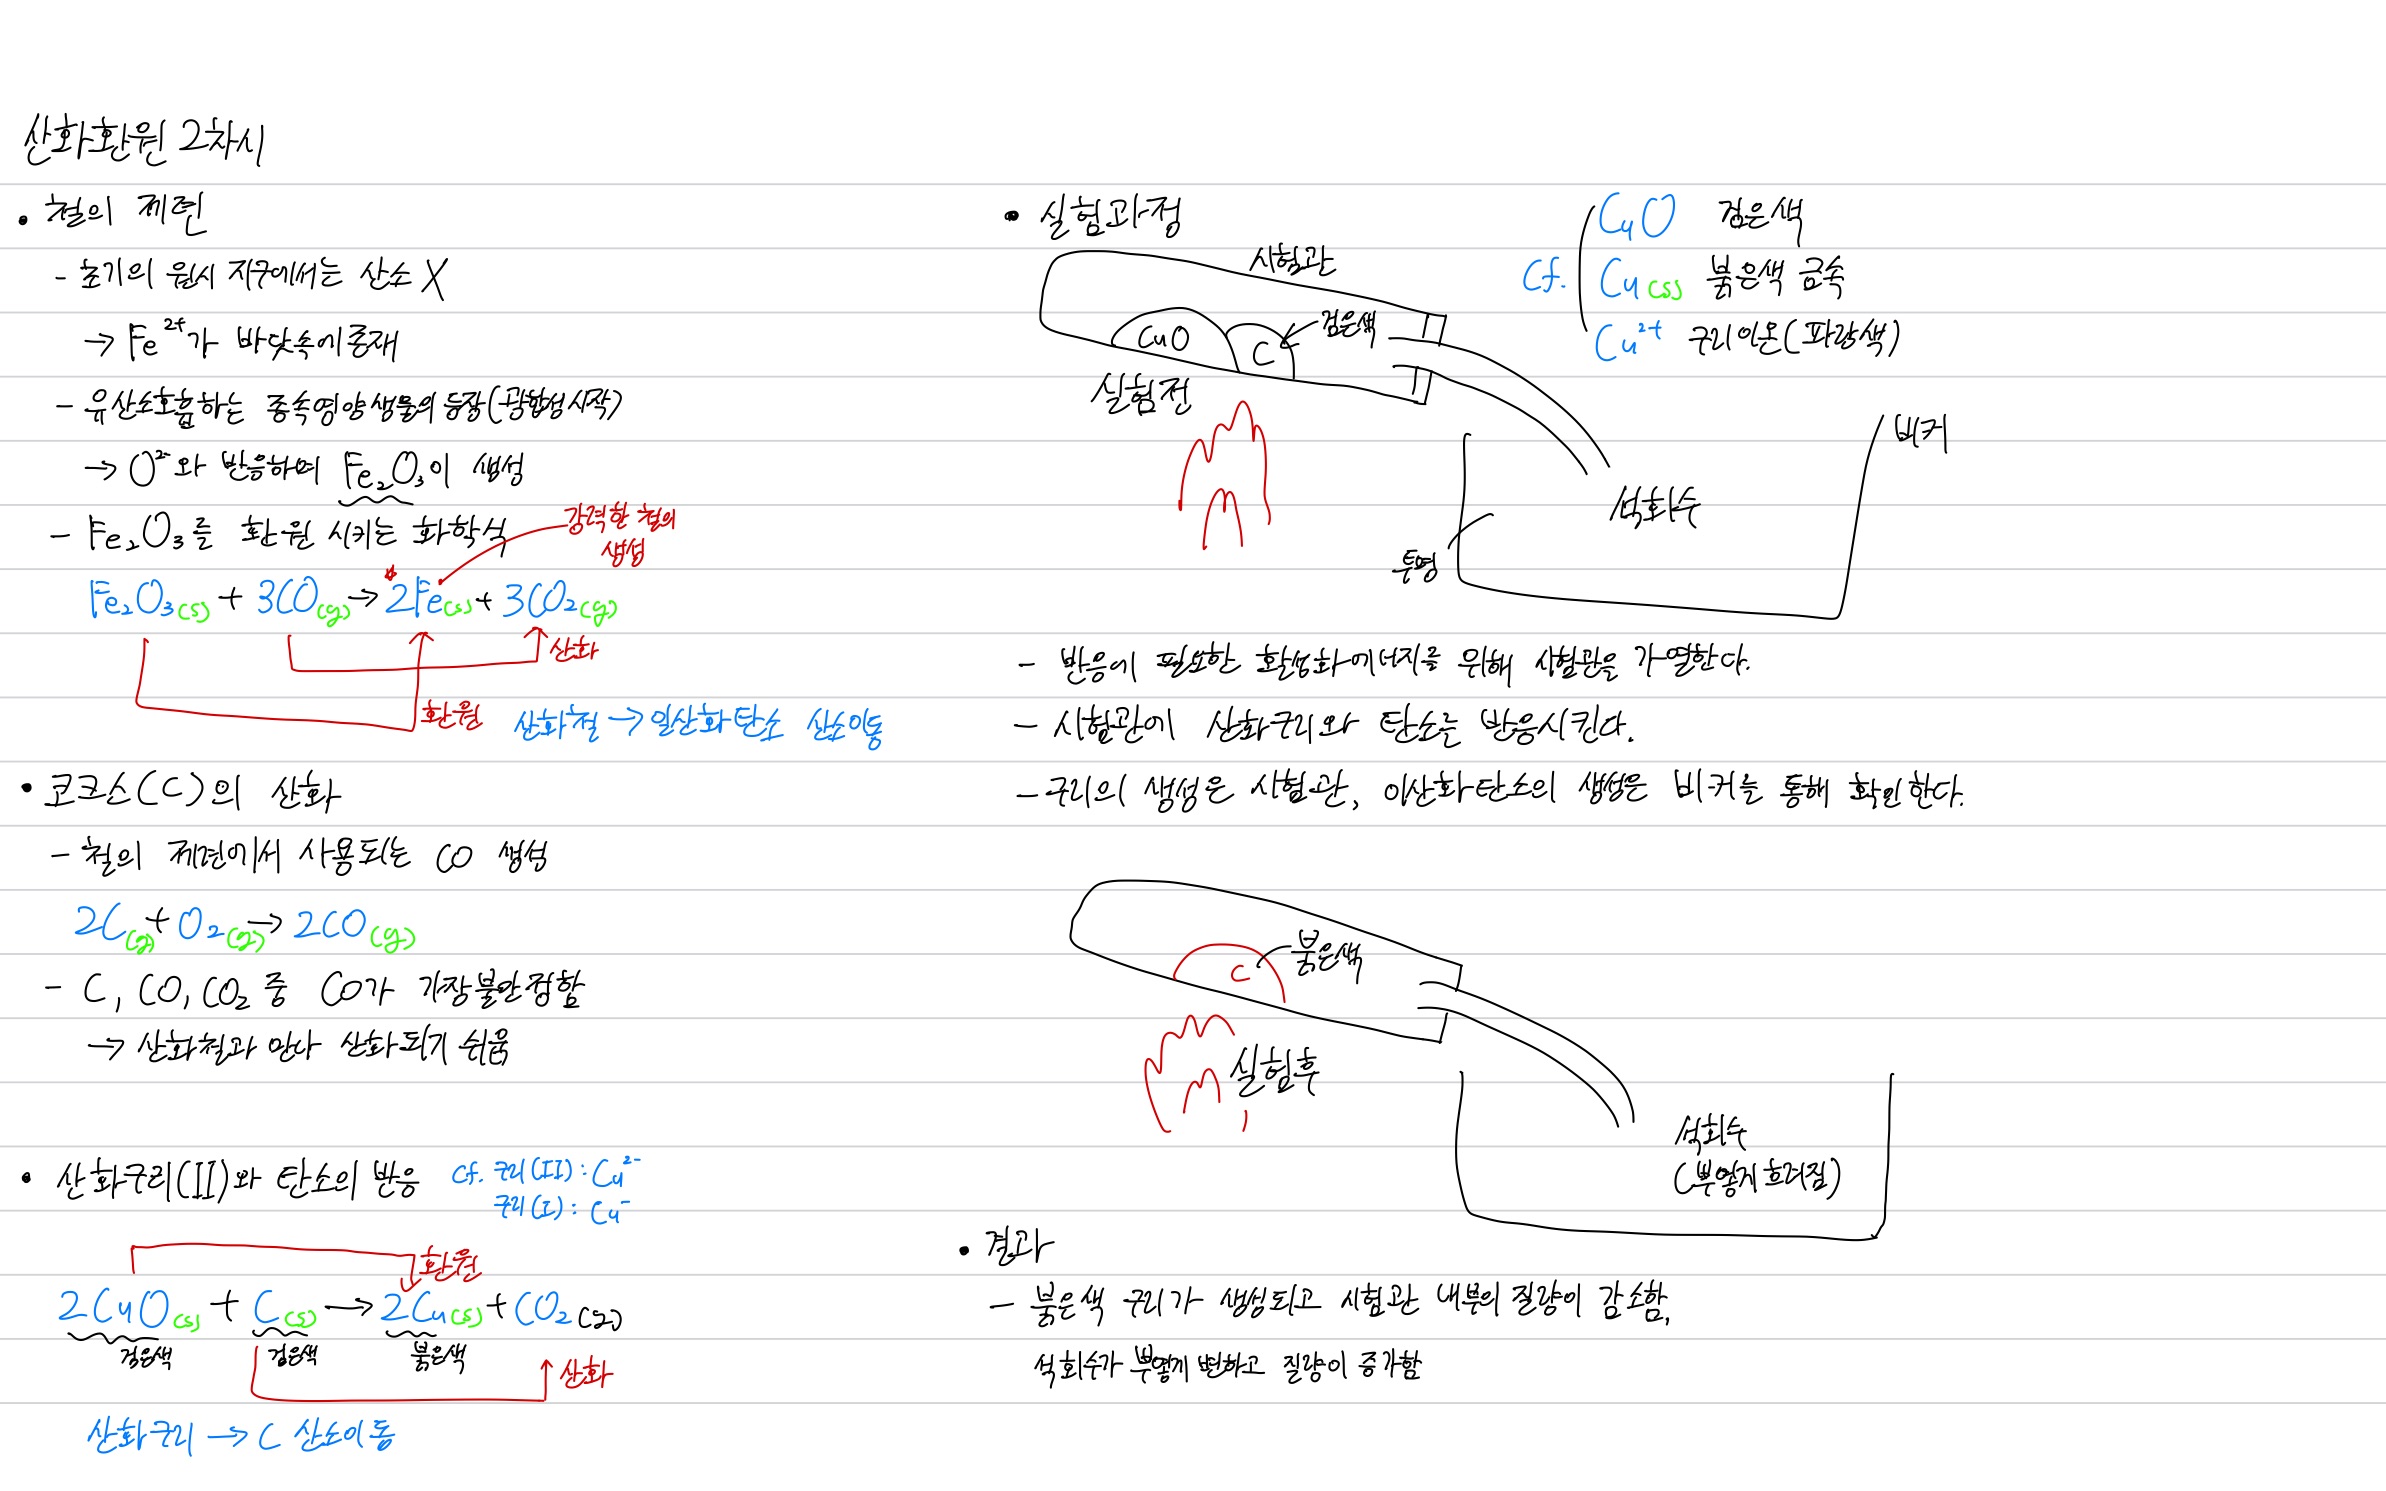 산화환원 2차시
• 철의 제련
- 초기의 원시 지구에서는 산소 X
→ Fe²⁺가 바닷속에 존재
- 유산소호흡하는 종속영양생물의 등장(광합성시작)
→ O²⁻와 반응하며 Fe₂O₃이 생성
- Fe₂O₃를 환원 시키는 화학식
강력한 철의
생성
Fe₂O₃(s) + 3CO(g) → *2Fe(s) + 3CO₂(g)
산화
환원
산화철 → 일산화탄소 산소이동
• 코크스(C)의 산화
- 철의 제련에서 사용되는 CO 생성
2C(g) + O₂(g) → 2CO(g)
- C, CO, CO₂ 중 CO가 가장불안정함
→ 산화철과 만나 산화되기 쉬움
• 산화구리(II)와 탄소의 반응
cf. 구리(II) : Cu²⁻
구리(I) : Cu⁻
환원
2CuO(s) + C(s) → 2Cu(s) + CO₂(g)
검은색 검은색 붉은색
산화
산화구리 → C 산소이동
• 실험과정
시험관
CuO C 검은색
실험전
cf.
CuO 검은색
Cu(s) 붉은색 금속
Cu²⁺ 구리이온(파랑색)
비커
석회수
투명
- 반응에 필요한 활성화에너지를 위해 시험관을 가열한다.
- 시험관에 산화구리와 탄소를 반응시킨다.
- 구리의 생성은 시험관, 이산화탄소의 생성은 비커를 통해 확인한다.
C 붉은색
실험후
석회수
(뿌옇게흐려짐)
• 결과
- 붉은색 구리가 생성되고 시험관 내부의 질량이 감소함,
석회수가 뿌옇게 변하고 질량이 증가함